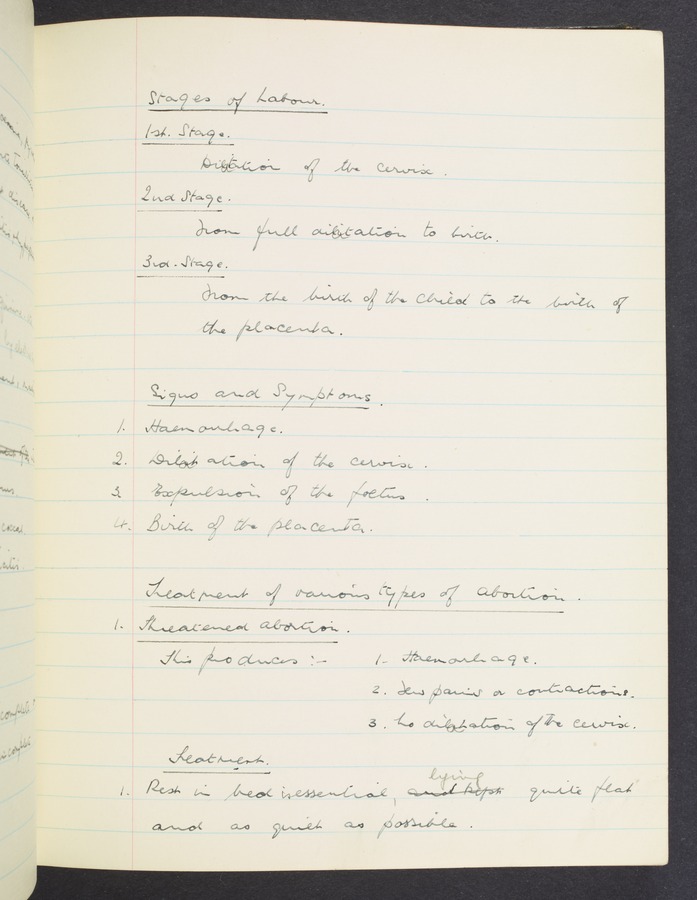 Stages of Labour.
1st. Stage.
Dilatation of the cervix.
2nd Stage.
From full dilatation to birth.
3rd. Stage.
From the birth of the child to the birth of
the placenta.
Signs and Symptoms.
1. Haemorrhage.
2. Dilatation of the cervix.
3. Expulsion of the foetus.
4. Birth of the placenta.
Treatment of various types of abortion.
1. Threatened abortion.
This produces :- 1. Haemorrhage.
2. Few pains or contractions.
3. No dilatation of the cervix.
Treatment.
lying
1. Rest in bed is essential, and kept quite flat
and as quiet as possible.